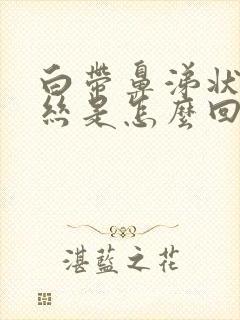 白帶鼻涕狀
絲是怎麼回
湛藍之花